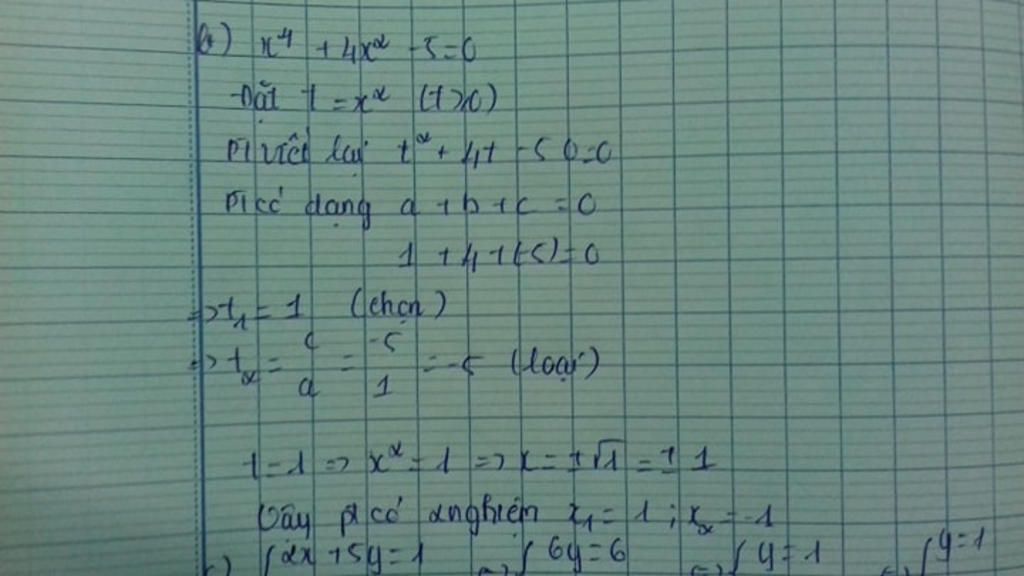 b) x⁴ + 4x² - 5 = 0
Đặt t = x² (t ≥ 0)
Pt viết lại t² + 4t - 5 0 = 0
Pt có dạng a + b + c = 0
1 + 4 + (-5) = 0
=> t₁ = 1 (chọn)
=> t₂ = c/a = -5/1 = -5 (loại)
t = 1 => x² = 1 => x = ±√1 = ± 1
Vậy pt có 2 nghiệm x₁ = 1 ; x₂ = -1
c) { 2x + 5y = 1 <=> { 6y = 6 <=> { y = 1 <=> { y = 1